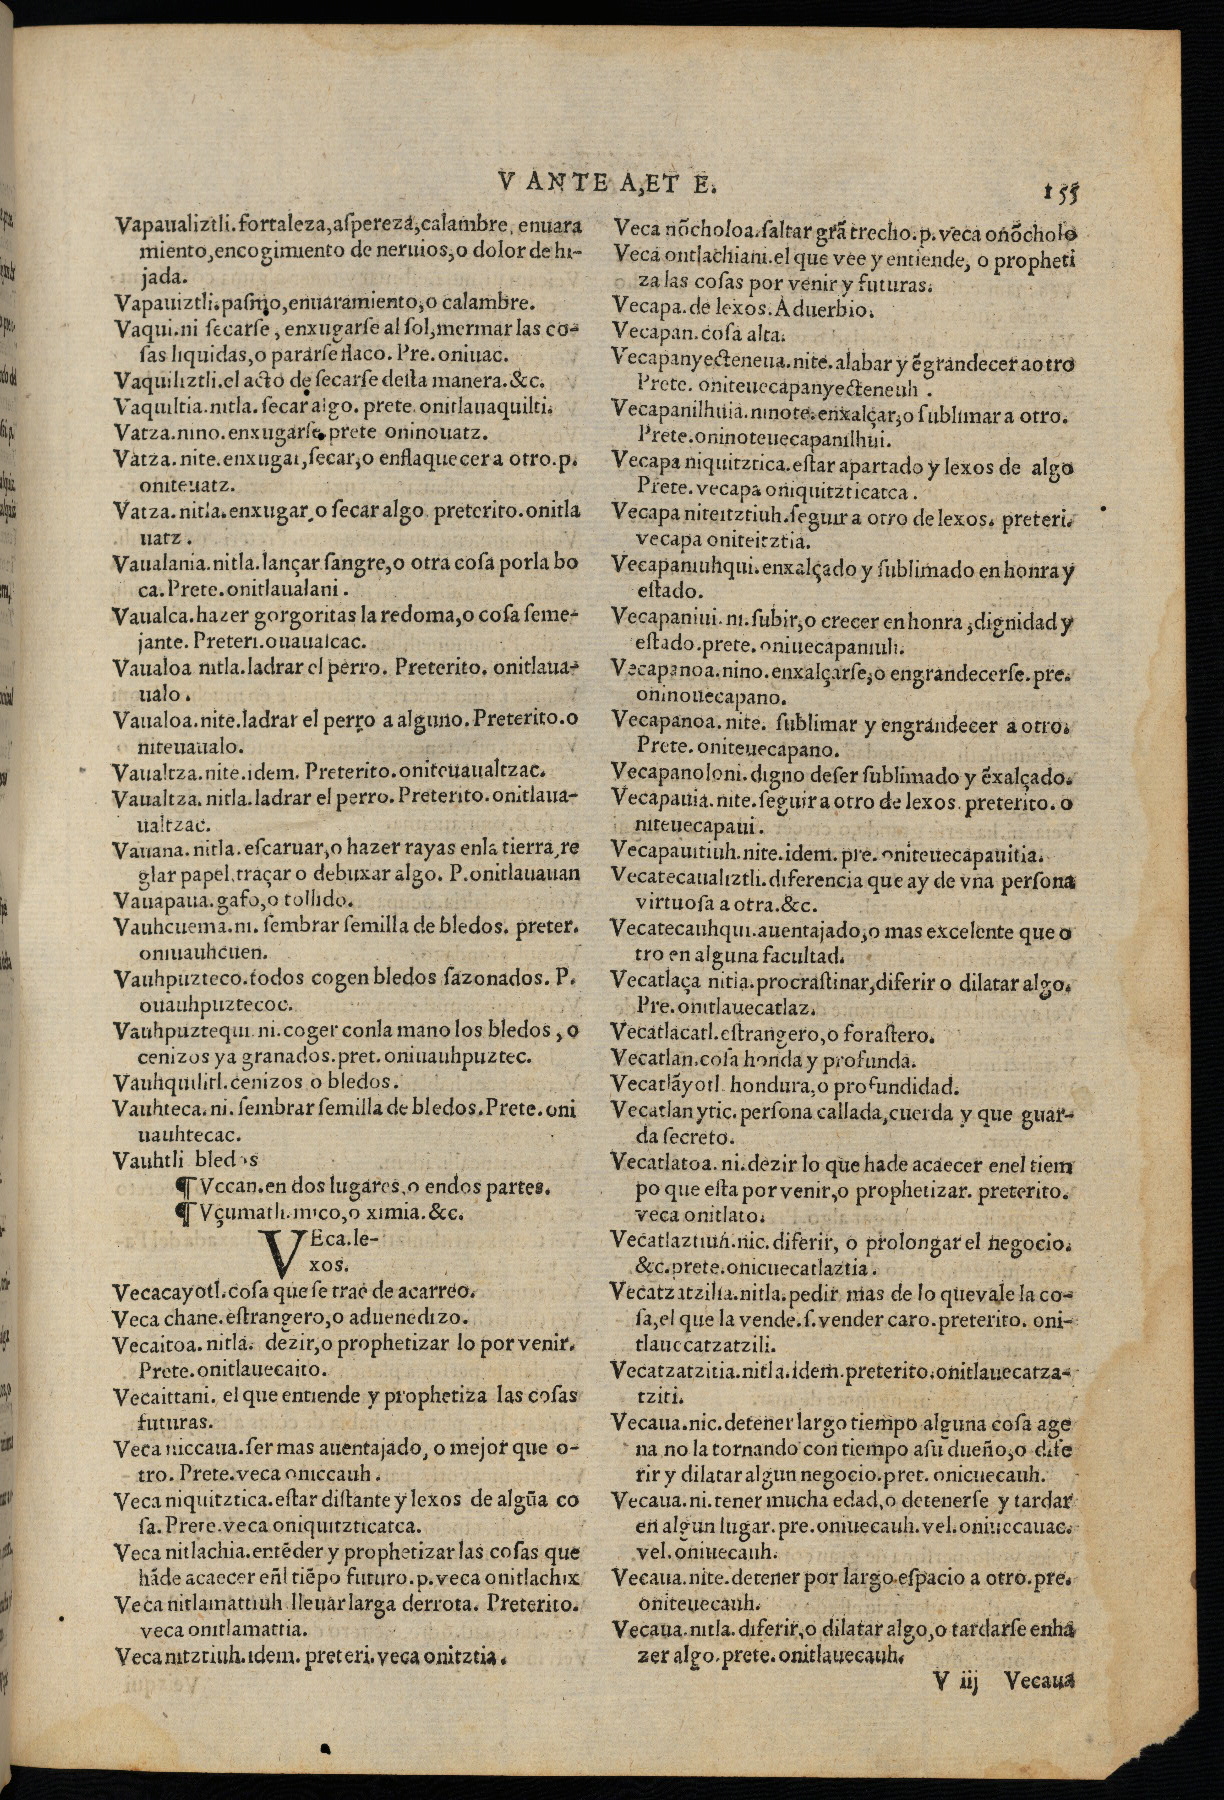 V ANTE A,ET E.
155
Vapaualiztli.fortaleza,aſpereza,calambre, enuara
miento,encogimiento de neruios,o dolor de hi-
jada.
Vapauiztli.paſmo,enuaramiento,o calambre.
Vaqui.ni ſecarſe, enxugarſe al ſol,mermar las co-
ſas liquidas,o pararſe flaco. Pre. oniuac.
Vaquiliztli.el acto de ſecarſe deſta manera.&c.
Vaquiltia.nitla. ſecar algo. prete. onitlauaquilti.
Vatza.nino.enxugarſe.prete oninouatz.
Vatza.nite.enxugar,ſecar,o enflaquecer a otro.p.
oniteuatz.
Vatza.nitla.enxugar,o ſecar algo preterito.onitla
uatz.
Vaualania.nitla.lançar ſangre,o otra coſa porla bo
ca.Prete.onitlaualani.
Vaualca.hazer gorgoritas la redoma,o coſa ſeme-
jante. Preteri.ouaualcac.
Vaualoa nitla.ladrar el perro. Preterito. onitlaua-
ualo.
Vaualoa.nite.ladrar el perro a alguno.Preterito.o
niteuaualo.
Vaualtza.nite.idem. Preterito.oniteuaualtzac.
Vaualtza.nitla.ladrar el perro.Preterito.onitlaua-
ualtzac.
Vauana.nitla.eſcaruar,o hazer rayas enla tierra,re
glar papel,traçar o debuxar algo. P.onitlauauan
Vauapaua.gafo,o tollido.
Vauhcuema.ni. ſembrar ſemilla de bledos. preter.
oniuauhcuen.
Vauhpuzteco.todos cogen bledos ſazonados. P.
ouauhpuztecoc.
Vauhpuztequi.ni.coger conla mano los bledos, o
cenizos ya granados.pret.oniuauhpuztec.
Vauhquilitl.cenizos o bledos.
Vauhteca.ni.ſembrar ſemilla de bledos.Prete.oni
uauhtecac.
Vauhtli bledos
¶ Vccan.en dos lugares,o endos partes.
¶ Vçumatli.mico,o ximia.&c.
VEca.le-
xos.
Vecacayotl.coſa que ſe trae de acarreo.
Veca chane.eſtrangero,o aduenedizo.
Vecaitoa.nitla. dezir,o prophetizar lo por venir.
Prete.onitlauecaito.
Vecaittani. el que entiende y prophetiza las coſas
futuras.
Veca niccaua.ſer mas auentajado, o mejor que o-
tro. Prete.veca oniccauh.
Veca niquitztica.eſtar diſtante y lexos de algũa co
ſa. Prete.veca oniquitzticatca.
Veca nitlachia.entẽder y prophetizar las coſas que
hãde acaecer eñl tiẽpo futuro.p.veca onitlachix
Veca nitlamattiuh lleuar larga derrota. Preterito.
veca onitlamattia.
Veca nitztiuh.idem. preteri.veca onitztia.
Veca nõcholoa.ſaltar grã trecho.p.veca onõcholo
Veca ontlachiani.el que vee y entiende, o propheti
za las coſas por venir y futuras.
Vecapa.de lexos.Aduerbio.
Vecapan.coſa alta.
Vecapanyecteneua.nite.alabar y ẽgrandecer ao tro
Prete. oniteuecapanyecteneuh.
Vecapanilhuia.ninote.enxalçar,o ſublimar a otro.
Prete.oninoteuecapanilhui.
Vecapa niquitztica.eſtar apartado y lexos de algo
Prete.vecapa oniquitzticatca.
Vecapa niteitztiuh.ſeguir a otro de lexos. preteri.
vecapa oniteitztia.
Vecapaniuhqui.enxalçado y ſublimado en honra y
eſtado.
Vecapaniui.ni.ſubir,o crecer en honra,dignidad y
eſtado.prete.oniuecapaniuh.
Vecapanoa.nino.enxalçarſe,o engrandecerſe.pre.
oninouecapano.
Vecapanoa.nite. ſublimar y engrandecer a otro.
Prete.oniteuecapano.
Vecapanoloni.digno deſer ſublimado y ẽxalçado.
Vecapauia.nite.ſeguir a otro de lexos.preterito.o
niteuecapaui.
Vecapauitiuh.nite.idem.pre.oniteuecapauitia.
Vecatecaualiztli.diferencia que ay de vna perſona
virtuoſa a otra.&c.
Vecatecauhqui.auentajado,o mas excelente que o
tro en alguna facultad.
Vecatlaça nitla.procraſtinar,diferir o dilatar algo.
Pre.onitlauecatlaz.
Vecatlacatl.eſtrangero,o foraſtero.
Vecatlan.coſa honda y profunda.
Vecatlãyotl hondura,o profundidad.
Vecatlan ytic.perſona callada,cuerda y que guar-
da ſecreto.
Vecatlatoa.ni.dezir lo que hade acaecer enel tiem
po que eſta por venir,o prophetizar. preterito.
veca onitlato.
Vecatlaztiuh.nic.diferir, o prolongar el negocio.
&c.prete.onicuecatlaztia.
Vecatzatzilia.nitla.pedir mas de lo quevale la co-
ſa,el que la vende.ſ.vender caro.preterito. oni-
tlauecatzatzili.
Vecatzatzitia.nitla.idem.preterito.onitlauecatza-
tziti.
Vecaua.nic.detener largo tiempo alguna coſa age
na no la tornando con tiempo aſu dueño,o dife
rir y dilatar algun negocio.pret.onicuecauh.
Vecaua.ni.tener mucha edad,o detenerſe y tardar
en algun lugar.pre.oniuecauh.vel.oniueccauac.
vel.oniuecauh.
Vecaua.nite.detener por largo eſpacio a otro.pre.
oniteuecauh.
Vecaua.nitla.diferir,o dilatar algo,o tardarſe enha
zer algo.prete.onitlauecauh.
V iij Vecaua